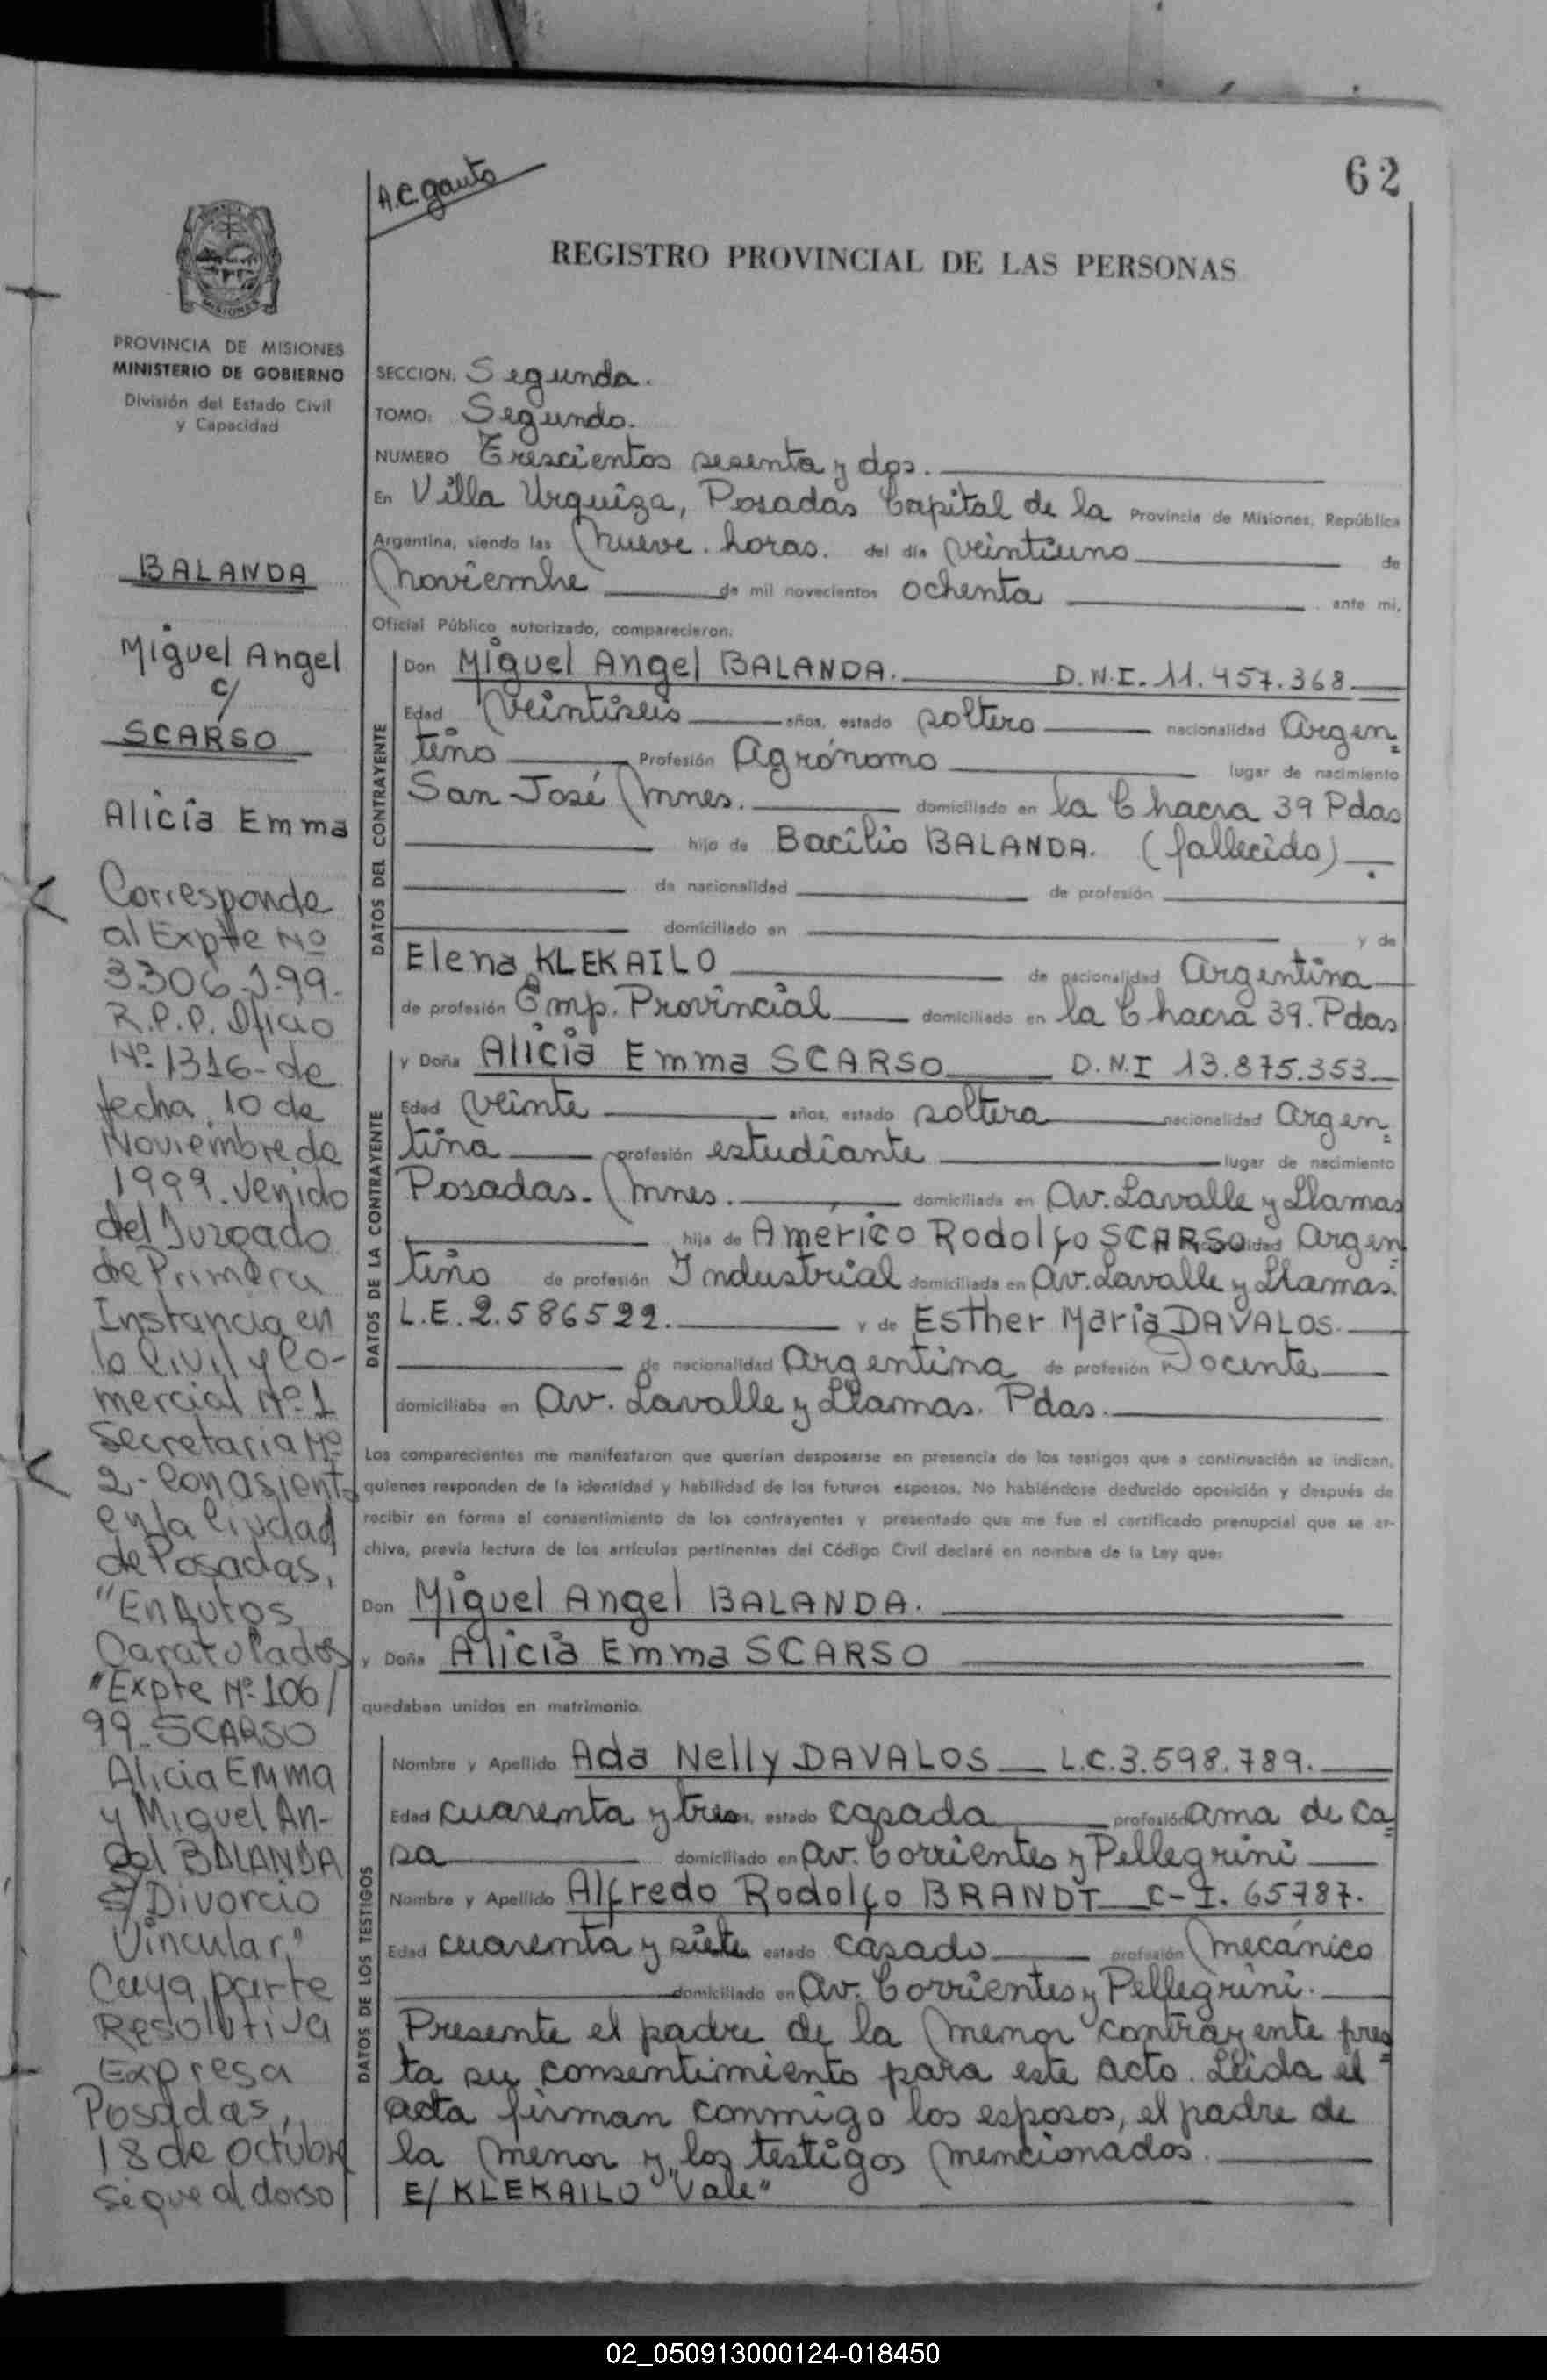 62
A.C. Gauto
REGISTRO PROVINCIAL DE LAS PERSONAS
MISIONES
PROVINCIA DE MISIONES
MINISTERIO DE GOBIERNO
División del Estado Civil
y Capacidad
BALANDA
Miguel Angel
c/
SCARSO
Alicia Emma
Corresponde
al Expte Nº
3306-J-99.
R.P.P. Oficio
Nº 1316- de
fecha 10 de
Noviembre de
1999. Venido
del Juzgado
de Primera
Instancia en
lo Civil y Co-
mercial Nº 1
Secretaria Nº
2.- Con asiento
en la Ciudad
de Posadas,
"En Autos
Caratulados
"Expte Nº 106/
99.- SCARSO
Alicia Emma
y Miguel An-
gel BALANDA
S/ Divorcio
Vincular,"
Cuya parte
Resolutiva
Expresa
Posadas,
18 de octubre
sigue al dorso
SECCION: Segunda.
TOMO: Segundo.
NUMERO Trescientos sesenta y dos.
En Villa Urquiza, Posadas Capital de la Provincia de Misiones, República
Argentina, siendo las nueve horas. del día veintiuno de
noviembre de mil novecientos ochenta ante mi,
Oficial Público autorizado, comparecieron:
DATOS DEL CONTRAYENTE
Don Miguel Angel BALANDA. D.N.I. 11.457.368
Edad veintiseis años, estado soltero nacionalidad argen=
tino Profesión Agrónomo lugar de nacimiento
San José Mnes. domiciliado en la Chacra 39 Pdas
hijo de Bacilio BALANDA. (fallecido).
de nacionalidad de profesión
domiciliado en y de
Elena KLEKAILO de nacionalidad argentina
de profesión Emp. Provincial domiciliado en la Chacra 39. Pdas
DATOS DE LA CONTRAYENTE
y Doña Alicia Emma SCARSO D.N.I 13.875.353
Edad veinte años, estado soltera nacionalidad argen=
tina profesión estudiante lugar de nacimiento
Posadas. Mnes. domiciliada en Av. Lavalle y Llamas
hija de Americo Rodolfo SCARSO nacionalidad argen=
tino de profesión Industrial domiciliada en Av. Lavalle y Llamas.
L.E. 2.586522. y de Esther Maria DAVALOS.
de nacionalidad argentina de profesión Docente
domiciliaba en Av. Lavalle y Llamas. Pdas.
Los comparecientes me manifestaron que querían desposarse en presencia de los testigos que a continuación se indican,
quienes responden de la identidad y habilidad de los futuros esposos. No habiéndose deducido oposición y después de
recibir en forma el consentimiento de los contrayentes y presentado que me fue el certificado prenupcial que se ar-
chiva, previa lectura de los artículos pertinentes del Código Civil declaré en nombre de la Ley que:
Don Miguel Angel BALANDA.
y Doña Alicia Emma SCARSO
quedaban unidos en matrimonio.
DATOS DE LOS TESTIGOS
Nombre y Apellido Ada Nelly DAVALOS L.C. 3.598.789.
Edad cuarenta y tres estado casada profesión ama de ca=
sa domiciliado en Av. Corrientes y Pellegrini
Nombre y Apellido Alfredo Rodolfo BRANDT C-I. 65787.
Edad cuarenta y siete estado casado profesión mecánico
domiciliado en Av. Corrientes y Pellegrini.
Presente el padre de la menor contrayente pres=
ta su consentimiento para este acto. Leida el
acta firman conmigo los esposos, el padre de
la menor y los testigos mencionados.
E/ KLEKAILO "Vale"
02_050913000124-018450